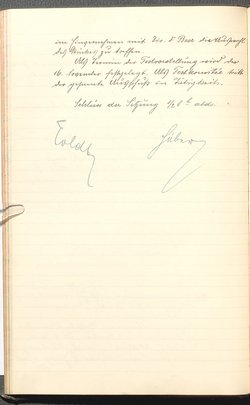 im Einvernehmen mit Dr. v. Beer die Auswahl
des Stückes zu treffen.
Als Termin der Festvorstellung wird der
16. November festgelegt. Als Festkomitée tritt
der gesamte Ausschuß in Tätigkeit.
Schluss der Sitzung 1/2 8h abds.